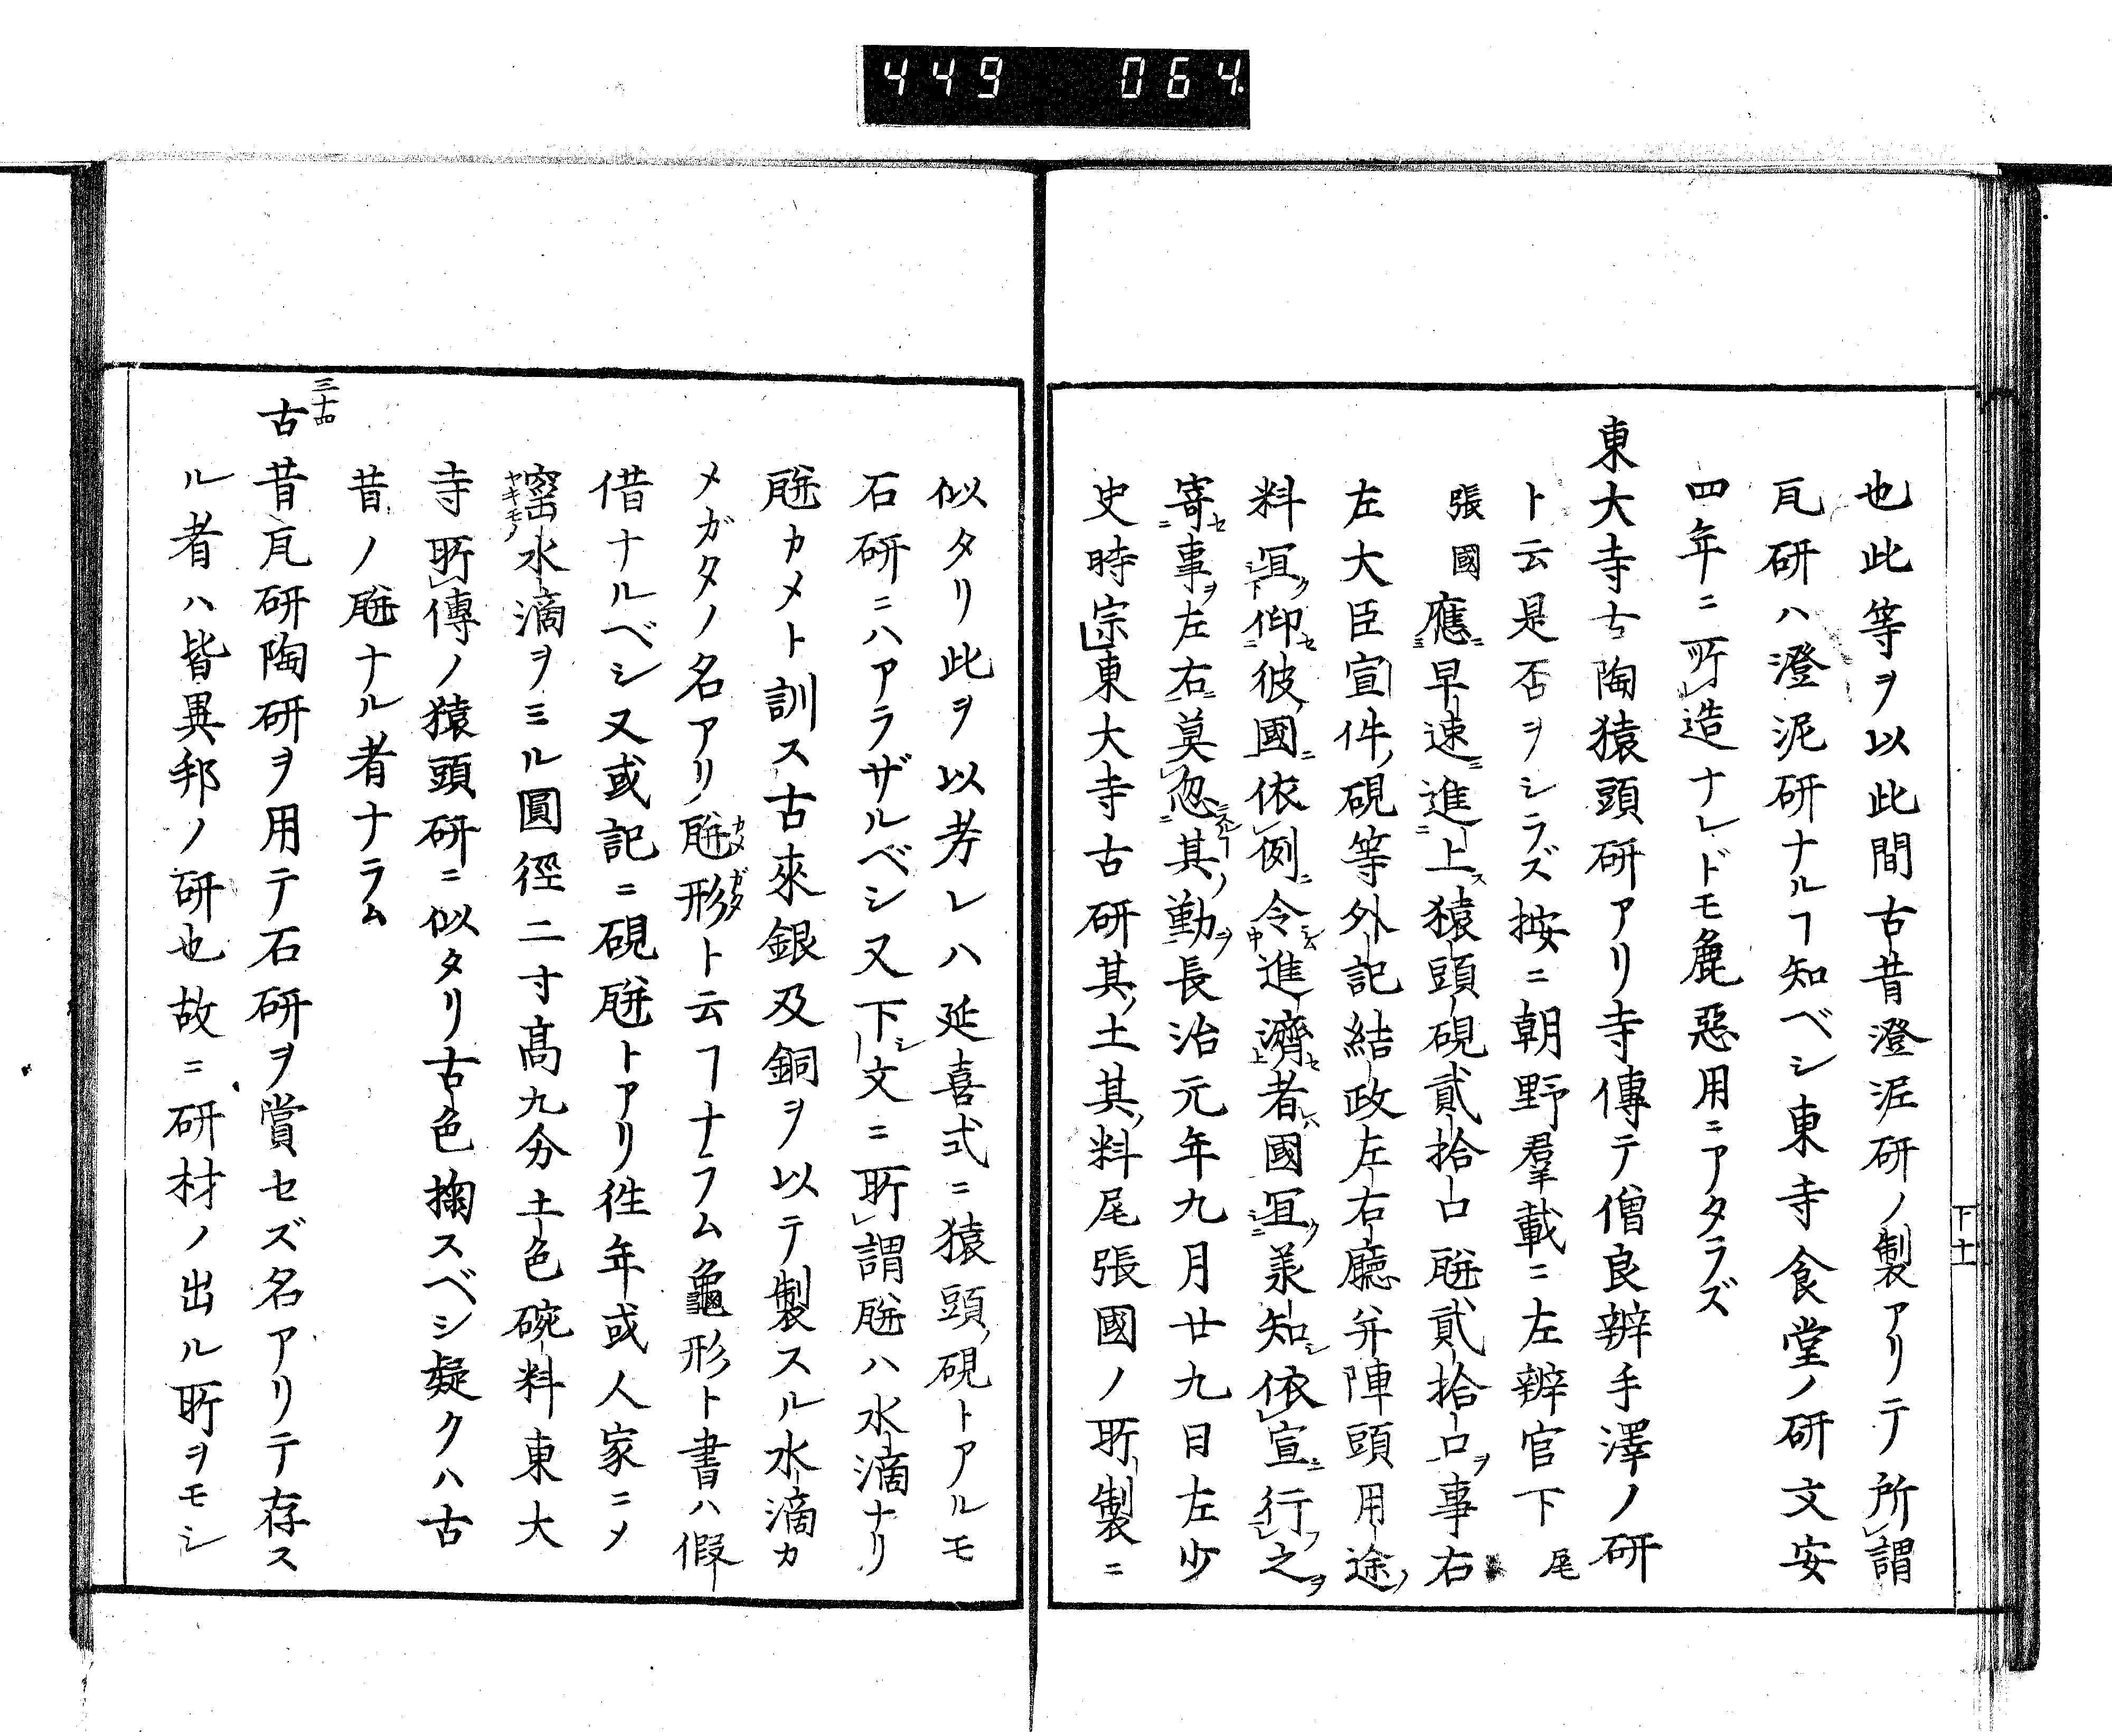 449 064
也此等ヲ以此間古昔澄泥研ノ製アリテ所謂
瓦研ハ澄泥研ナルヿ知ベシ東寺食堂ノ研文安
四年ニ所造ナレドモ麁惡用ニアタラズ
東大寺古陶猿頭研アリ寺傳テ僧良辨手澤ノ研
ト云是否ヲシラズ按ニ朝野羣載ニ左辨官下 尾
張國 應早速進上猿頭硯貳拾口瓶貳拾口事右
左大臣宣件硯等外記結政左右廳并陣頭用途
料冝仰彼國依例令進濟者國冝羕知依宣行之
寄事左右莫忽其勤長治元年九月廿九日左少
史時宗東大寺古研其土其料尾張國ノ所製ニ
下十
似タリ此ヲ以考レハ延喜式ニ猿頭硯トアルモ
石研ニハアラザルベシ又下文ニ所謂瓶ハ水滴ナリ
瓶カメト訓ス古來銀及銅ヲ以テ製スル水滴カ
メガタノ名アリ瓶形ト云フナラム龜形ト書ハ假
カメガタ
借ナルベシ又或記ニ硯瓶トアリ徃年或人家ニメ
窑水滴ヲミル圓徑二寸髙九分土色碗料東大
ヤキモノ
寺所傳ノ猿頭研ニ似タリ古色掬スベシ疑クハ古
昔ノ瓶ナル者ナラム
三十四
古昔瓦研陶研ヲ用テ石研ヲ賞セズ名アリテ存ス
ル者ハ皆異邦ノ研也故ニ研材ノ出ル所ヲモシ